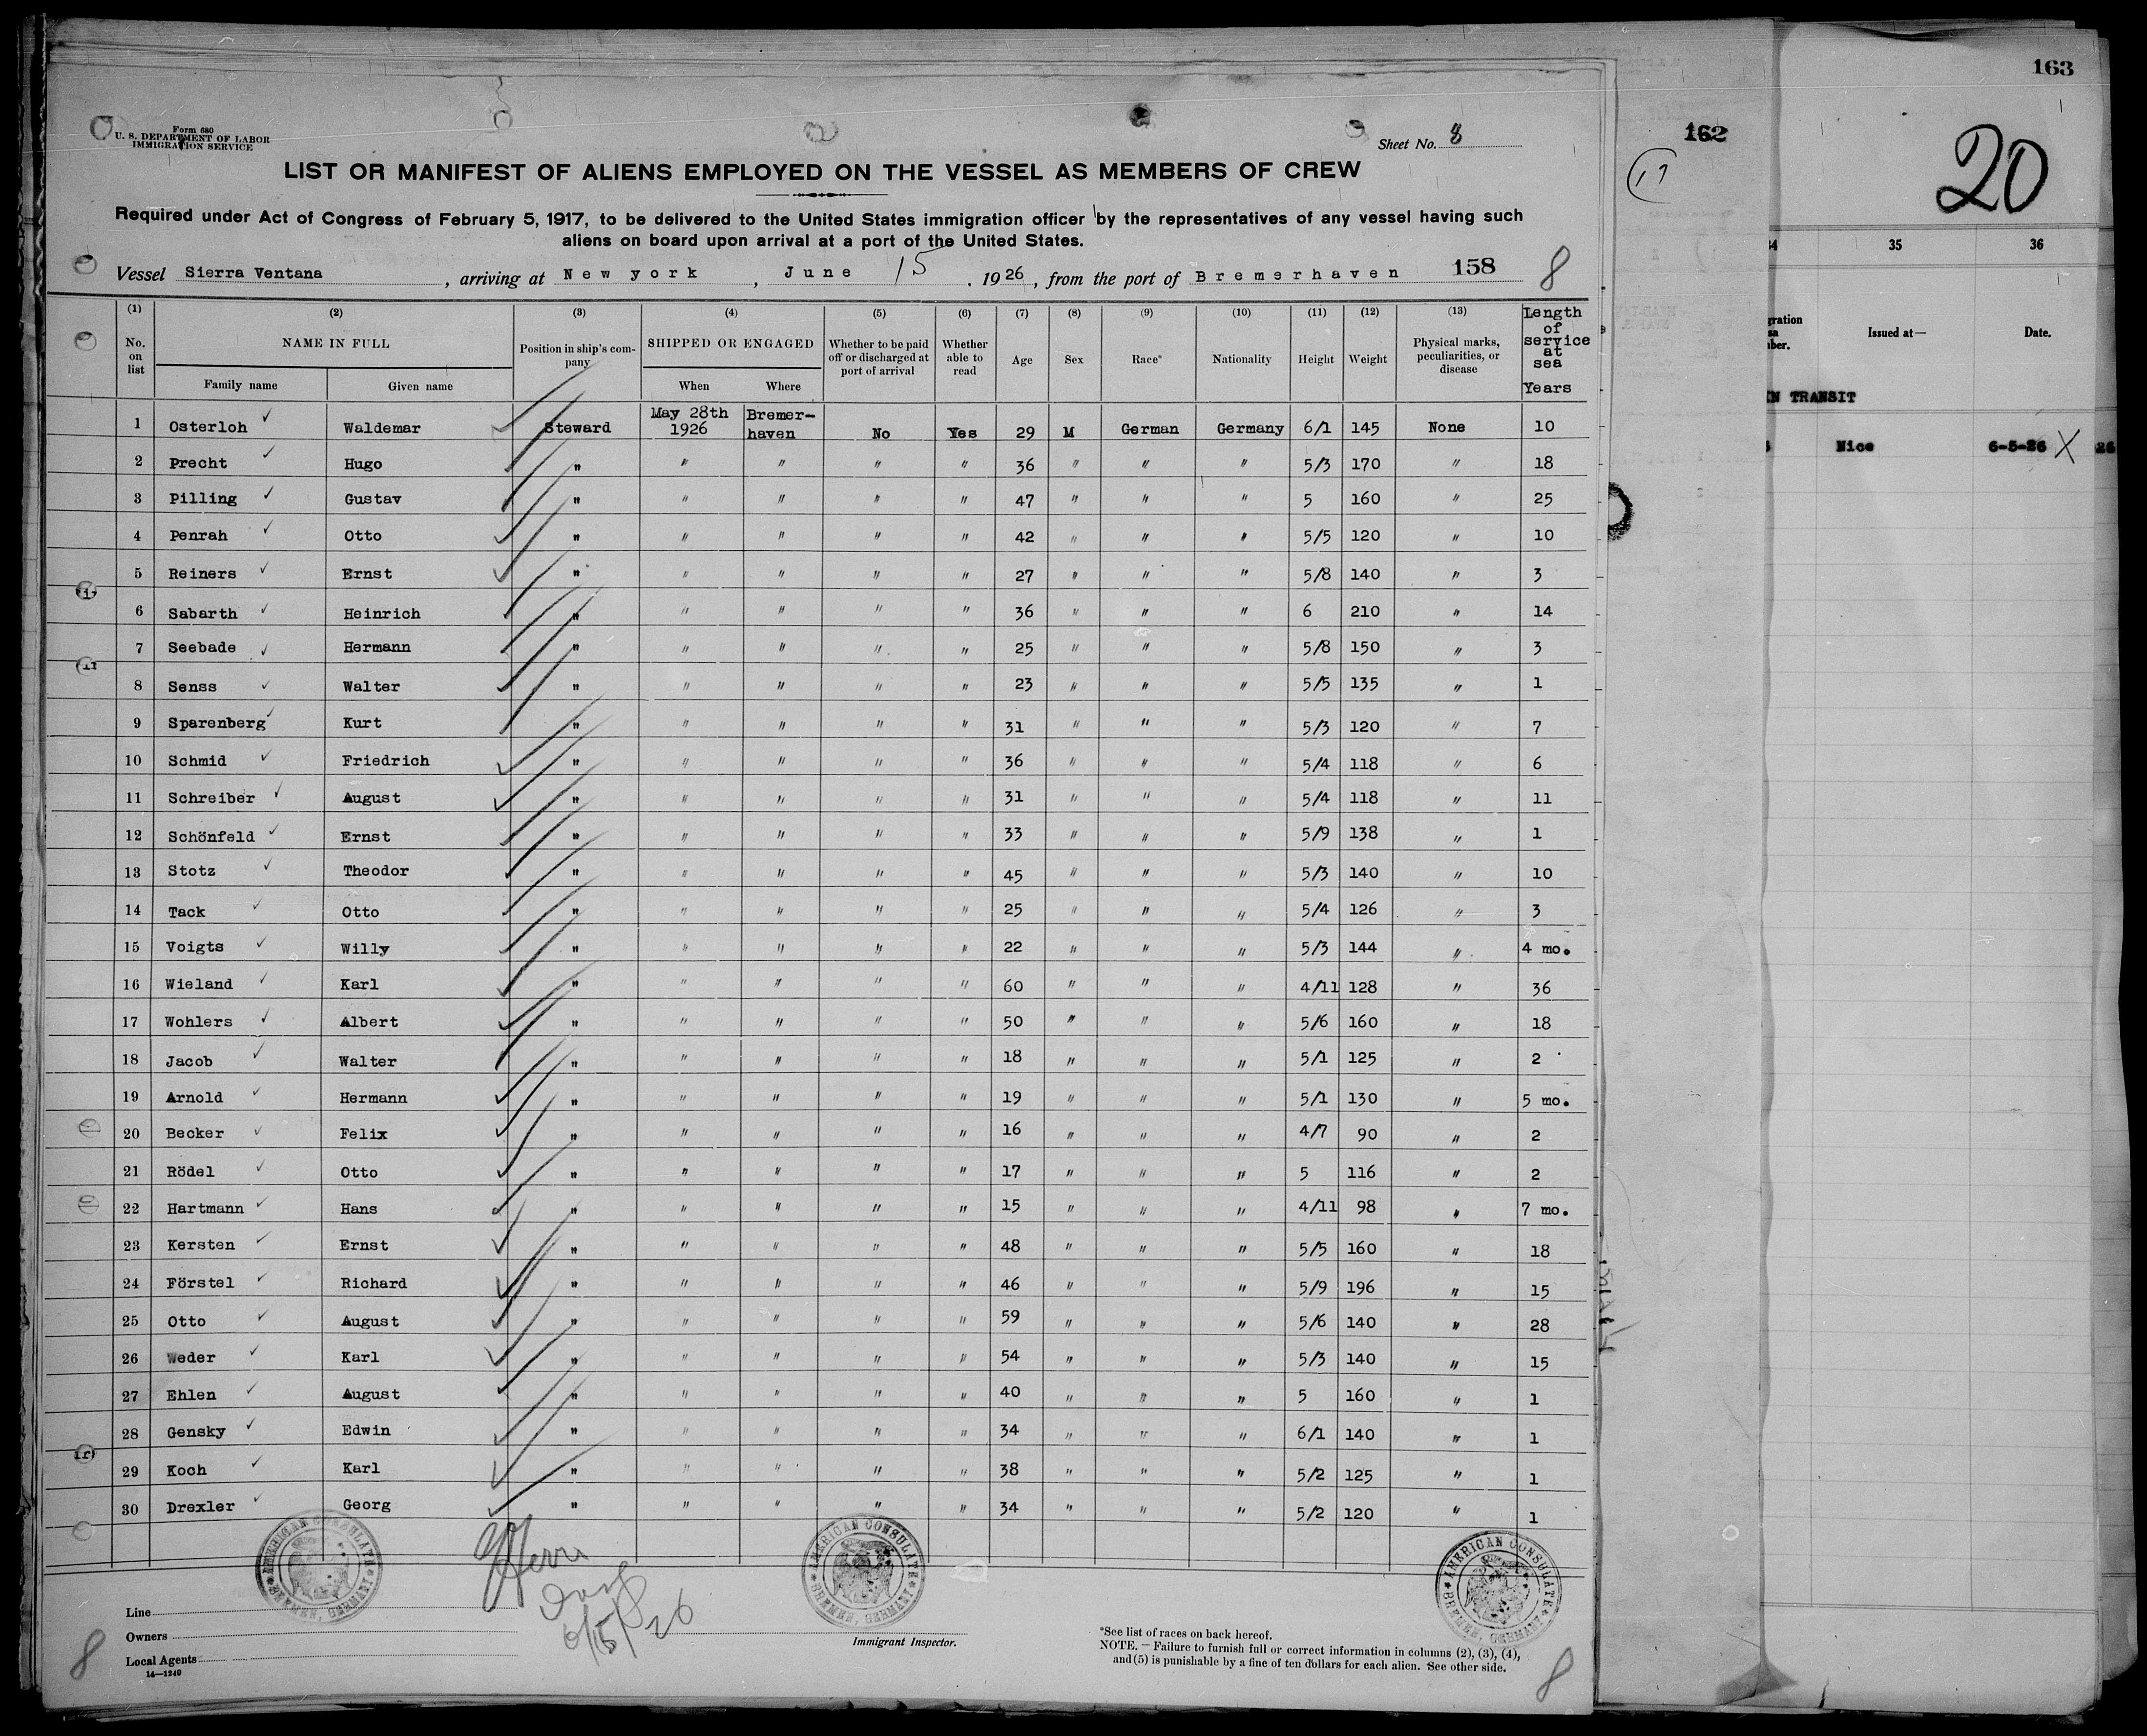 163
162
20
Form 680
U. S. DEPARTMENT OF LABOR
IMMIGRATION SERVICE
Sheet No. 8
LIST OR MANIFEST OF ALIENS EMPLOYED ON THE VESSEL AS MEMBERS OF CREW
Required under Act of Congress of February 5, 1917, to be delivered to the United States immigration officer by the representatives of any vessel having such
aliens on board upon arrival at a port of the United States.
Vessel Sierra Ventana , arriving at New york , June 15 . 1926 , from the port of Bremerhaven 158 8
(1) (2) (3) (4) (5) (6) (7) (8) (9) (10) (11) (12) (13) Length of service at sea Years
No. on list NAME IN FULL Position in ship's company SHIPPED OR ENGAGED Whether to be paid off or discharged at port of arrival Whether able to read Age Sex Race* Nationality Height Weight Physical marks, peculiarities, or disease
Family name Given name When Where
1 Osterloh ✓ Waldemar Steward May 28th 1926 Bremer-haven No Yes 29 M German Germany 6/1 145 None 10
2 Precht ✓ Hugo " " " " " 36 " " " 5/3 170 " 18
3 Pilling ✓ Gustav " " " " " 47 " " " 5 160 " 25
4 Penrah ✓ Otto " " " " " 42 " " " 5/5 120 " 10
5 Reiners ✓ Ernst " " " " " 27 " " " 5/8 140 " 3
6 Sabarth ✓ Heinrich " " " " " 36 " " " 6 210 " 14
7 Seebade ✓ Hermann " " " " " 25 " " " 5/8 150 " 3
8 Senss ✓ Walter " " " " " 23 " " " 5/5 135 " 1
9 Sparenberg ✓ Kurt " " " " " 31 " " " 5/3 120 " 7
10 Schmid ✓ Friedrich " " " " " 36 " " " 5/4 118 " 6
11 Schreiber ✓ August " " " " " 31 " " " 5/4 118 " 11
12 Schönfeld ✓ Ernst " " " " " 33 " " " 5/9 138 " 1
13 Stotz ✓ Theodor " " " " " 45 " " " 5/3 140 " 10
14 Tack ✓ Otto " " " " " 25 " " " 5/4 126 " 3
15 Voigts ✓ Willy " " " " " 22 " " " 5/3 144 " 4 mo.
16 Wieland ✓ Karl " " " " " 60 " " " 4/11 128 " 36
17 Wohlers ✓ Albert " " " " " 50 " " " 5/6 160 " 18
18 Jacob ✓ Walter " " " " " 18 " " " 5/1 125 " 2
19 Arnold ✓ Hermann " " " " " 19 " " " 5/1 130 " 5 mo.
20 Becker ✓ Felix " " " " " 16 " " " 4/7 90 " 2
21 Rödel ✓ Otto " " " " " 17 " " " 5 116 " 2
22 Hartmann ✓ Hans " " " " " 15 " " " 4/11 98 " 7 mo.
23 Kersten ✓ Ernst " " " " " 48 " " " 5/5 160 " 18
24 Förstel ✓ Richard " " " " " 46 " " " 5/9 196 " 15
25 Otto ✓ August " " " " " 59 " " " 5/6 140 " 28
26 Weder ✓ Karl " " " " " 54 " " " 5/3 140 " 15
27 Ehlen ✓ August " " " " " 40 " " " 5 160 " 1
28 Gensky ✓ Edwin " " " " " 34 " " " 6/1 140 " 1
29 Koch ✓ Karl " " " " " 38 " " " 5/2 125 " 1
30 Drexler ✓ Georg " " " " " 34 " " " 5/2 120 " 1
AMERICAN CONSULATE BREMEN, GERMANY
AMERICAN CONSULATE BREMEN, GERMANY
AMERICAN CONSULATE BREMEN, GERMANY
6/15/26
Line
Owners
Local Agents
14—1240
Immigrant Inspector.
*See list of races on back hereof.
NOTE. — Failure to furnish full or correct information in columns (2), (3), (4),
and (5) is punishable by a fine of ten dollars for each alien. See other side.
8
8
34 35 36
Issued at— Date.
IN TRANSIT
Nice 6-5-26 X 26